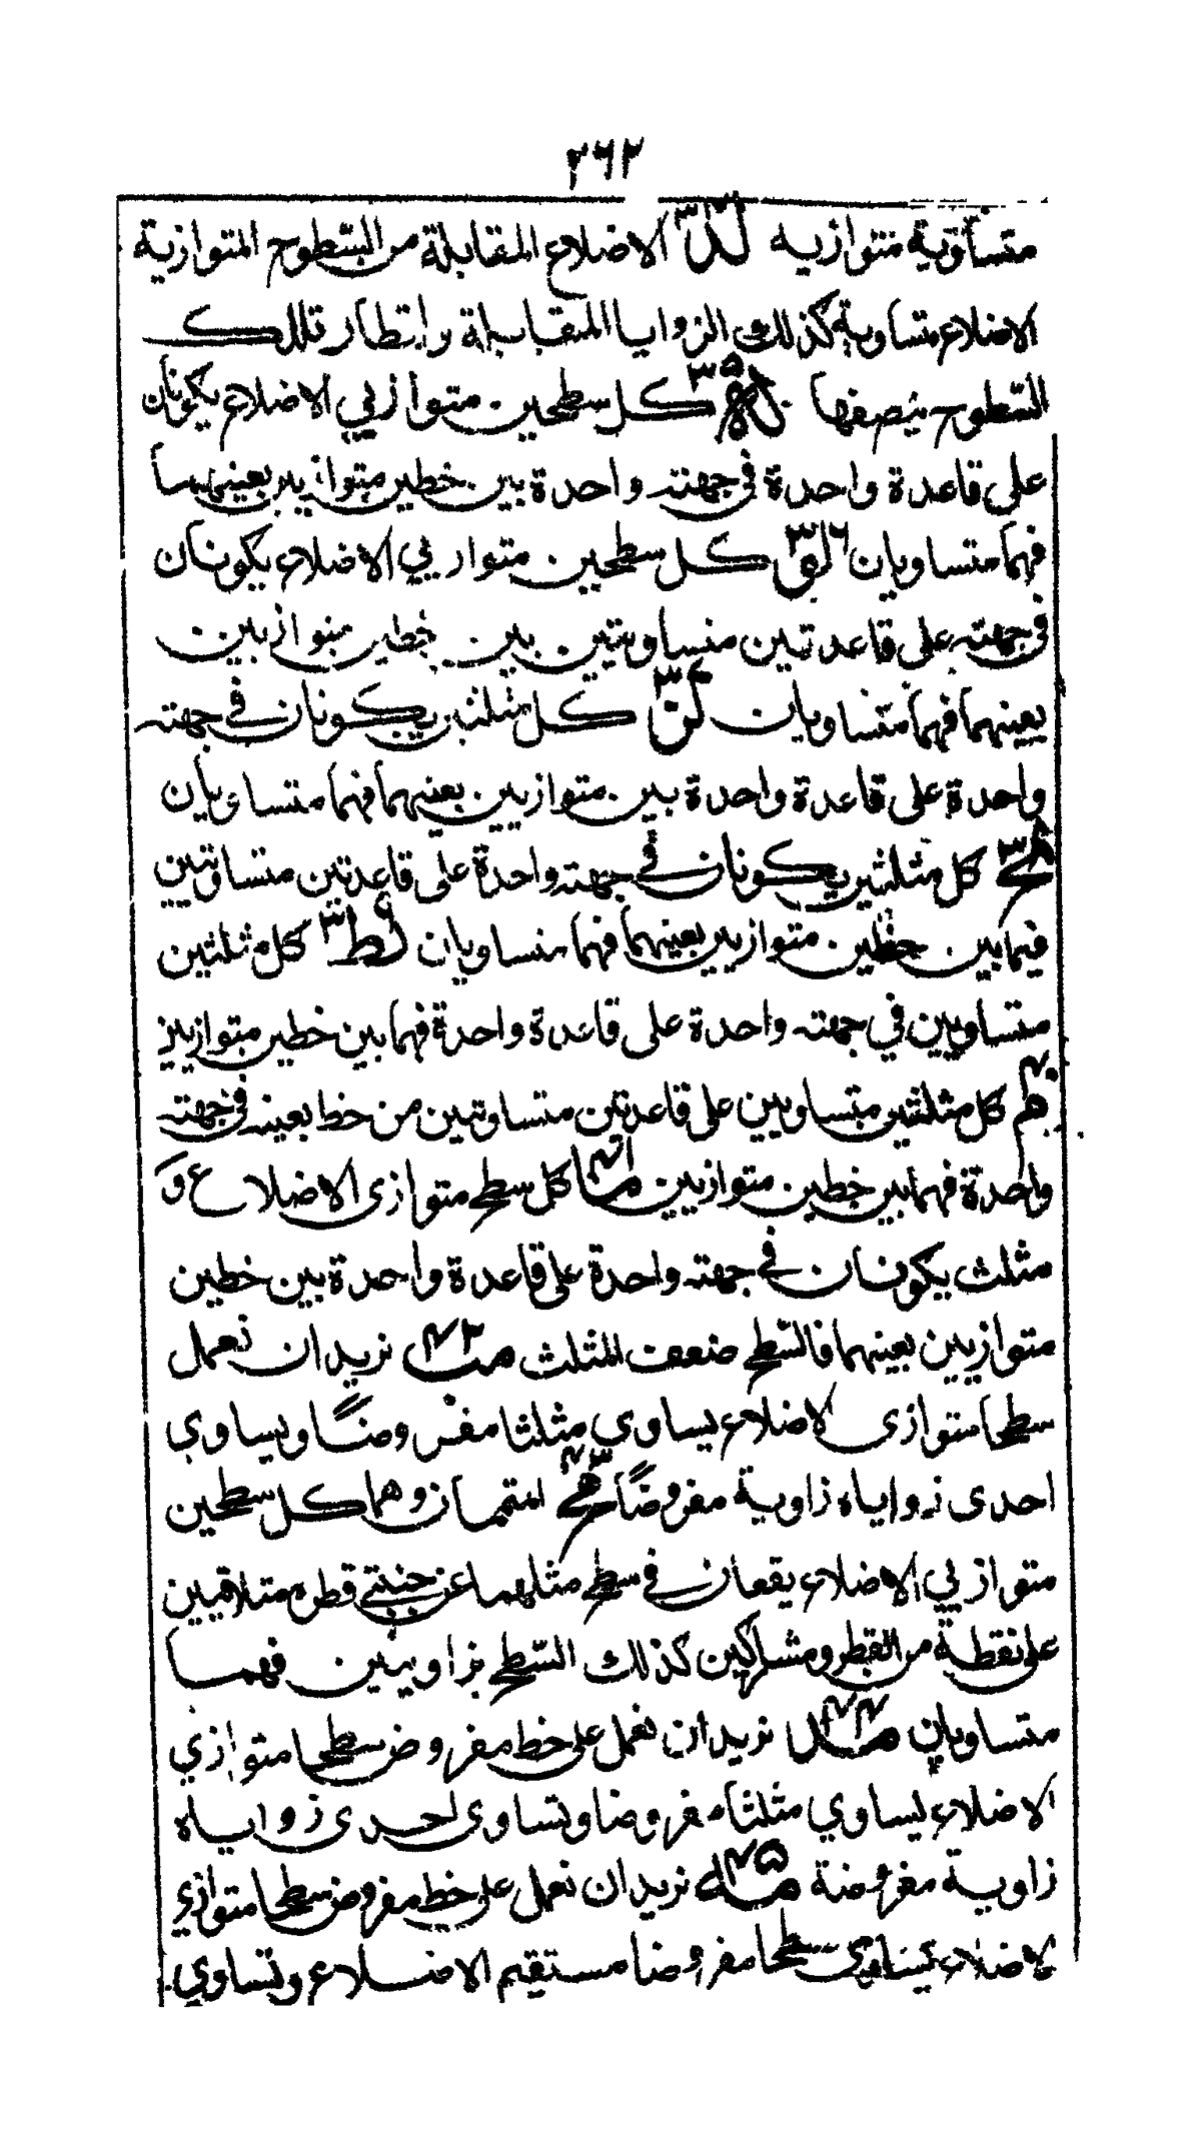 ٢٦٢
متساوية متوازيه لد ٣٤ الاضلاع المقابلة من السّطوح المتوازية
الاضلاع متساوية كذلك الزوايا المتقابلة واقطار تلك
السّطوح ينصفها لة ٣٥ كل سطحين متوازيي الاضلاع يكونان
على قاعدة واحدة فى جهته واحدة بين خطين متوازيين بعينهما
فهما متساويان لو ٣٦ كل سطحين متوازيي الاضلاع يكونان
فى جهته على قاعدتين متساويتين بين خطين متوازيين
بعينهما فهما متساويان لز ٣٧ كل مثلثين يكونان فى جهته
واحدة على قاعدة واحدة بين متوازيين بعينهما فهما متساويان
لح ٣٨ كل مثلثين يكونان فى جهته واحدة على قاعدتين متساويتين
فيما بين خطين متوازيين بعينهما فهما متساويان لط ٣٩ كل مثلثين
متساويين في جهته واحدة على قاعدة واحدة فهما بين خطين متوازيين
م ٤٠ كل مثلثين متساويين على قاعدتين متساويتين من خط بعينه فى جهته
واحدة فهما بين خطين متوازيين ما ٤١ كل سطح متوازى الاضلاع و
مثلث يكونان فى جهته واحدة على قاعدة واحدة بين خطين
متوازيين بعينهما فالسّطح ضعف المثلث مب ٤٢ نريد ان نعمل
سطحا متوازى الاضلاع يساوي مثلثا مفروضًا ويساوي
احدى زواياه زاوية مفروضًا مح ٤٣ المتممان وهما كل سطحين
متوازيي الاضلاع يقعان فى سطح مثلهما عن جنبتي قطره متلاقيين
على نقطة من القطر ومشاركين كذلك السّطح بزاويتين فهما
متساويان مد ٤٤ نريد ان نعمل على خط مفروض سطحا متوازي
الاضلاع يساوي مثلثا مفروضا وتساوى احدى زواياه
زاوية مفروضة مه ٤٥ نريد ان نعمل على خط مفروض سطحا متوازي
الاضلاع يساوى سطحا مفروضا مستقيم الاضلاع وتساوي